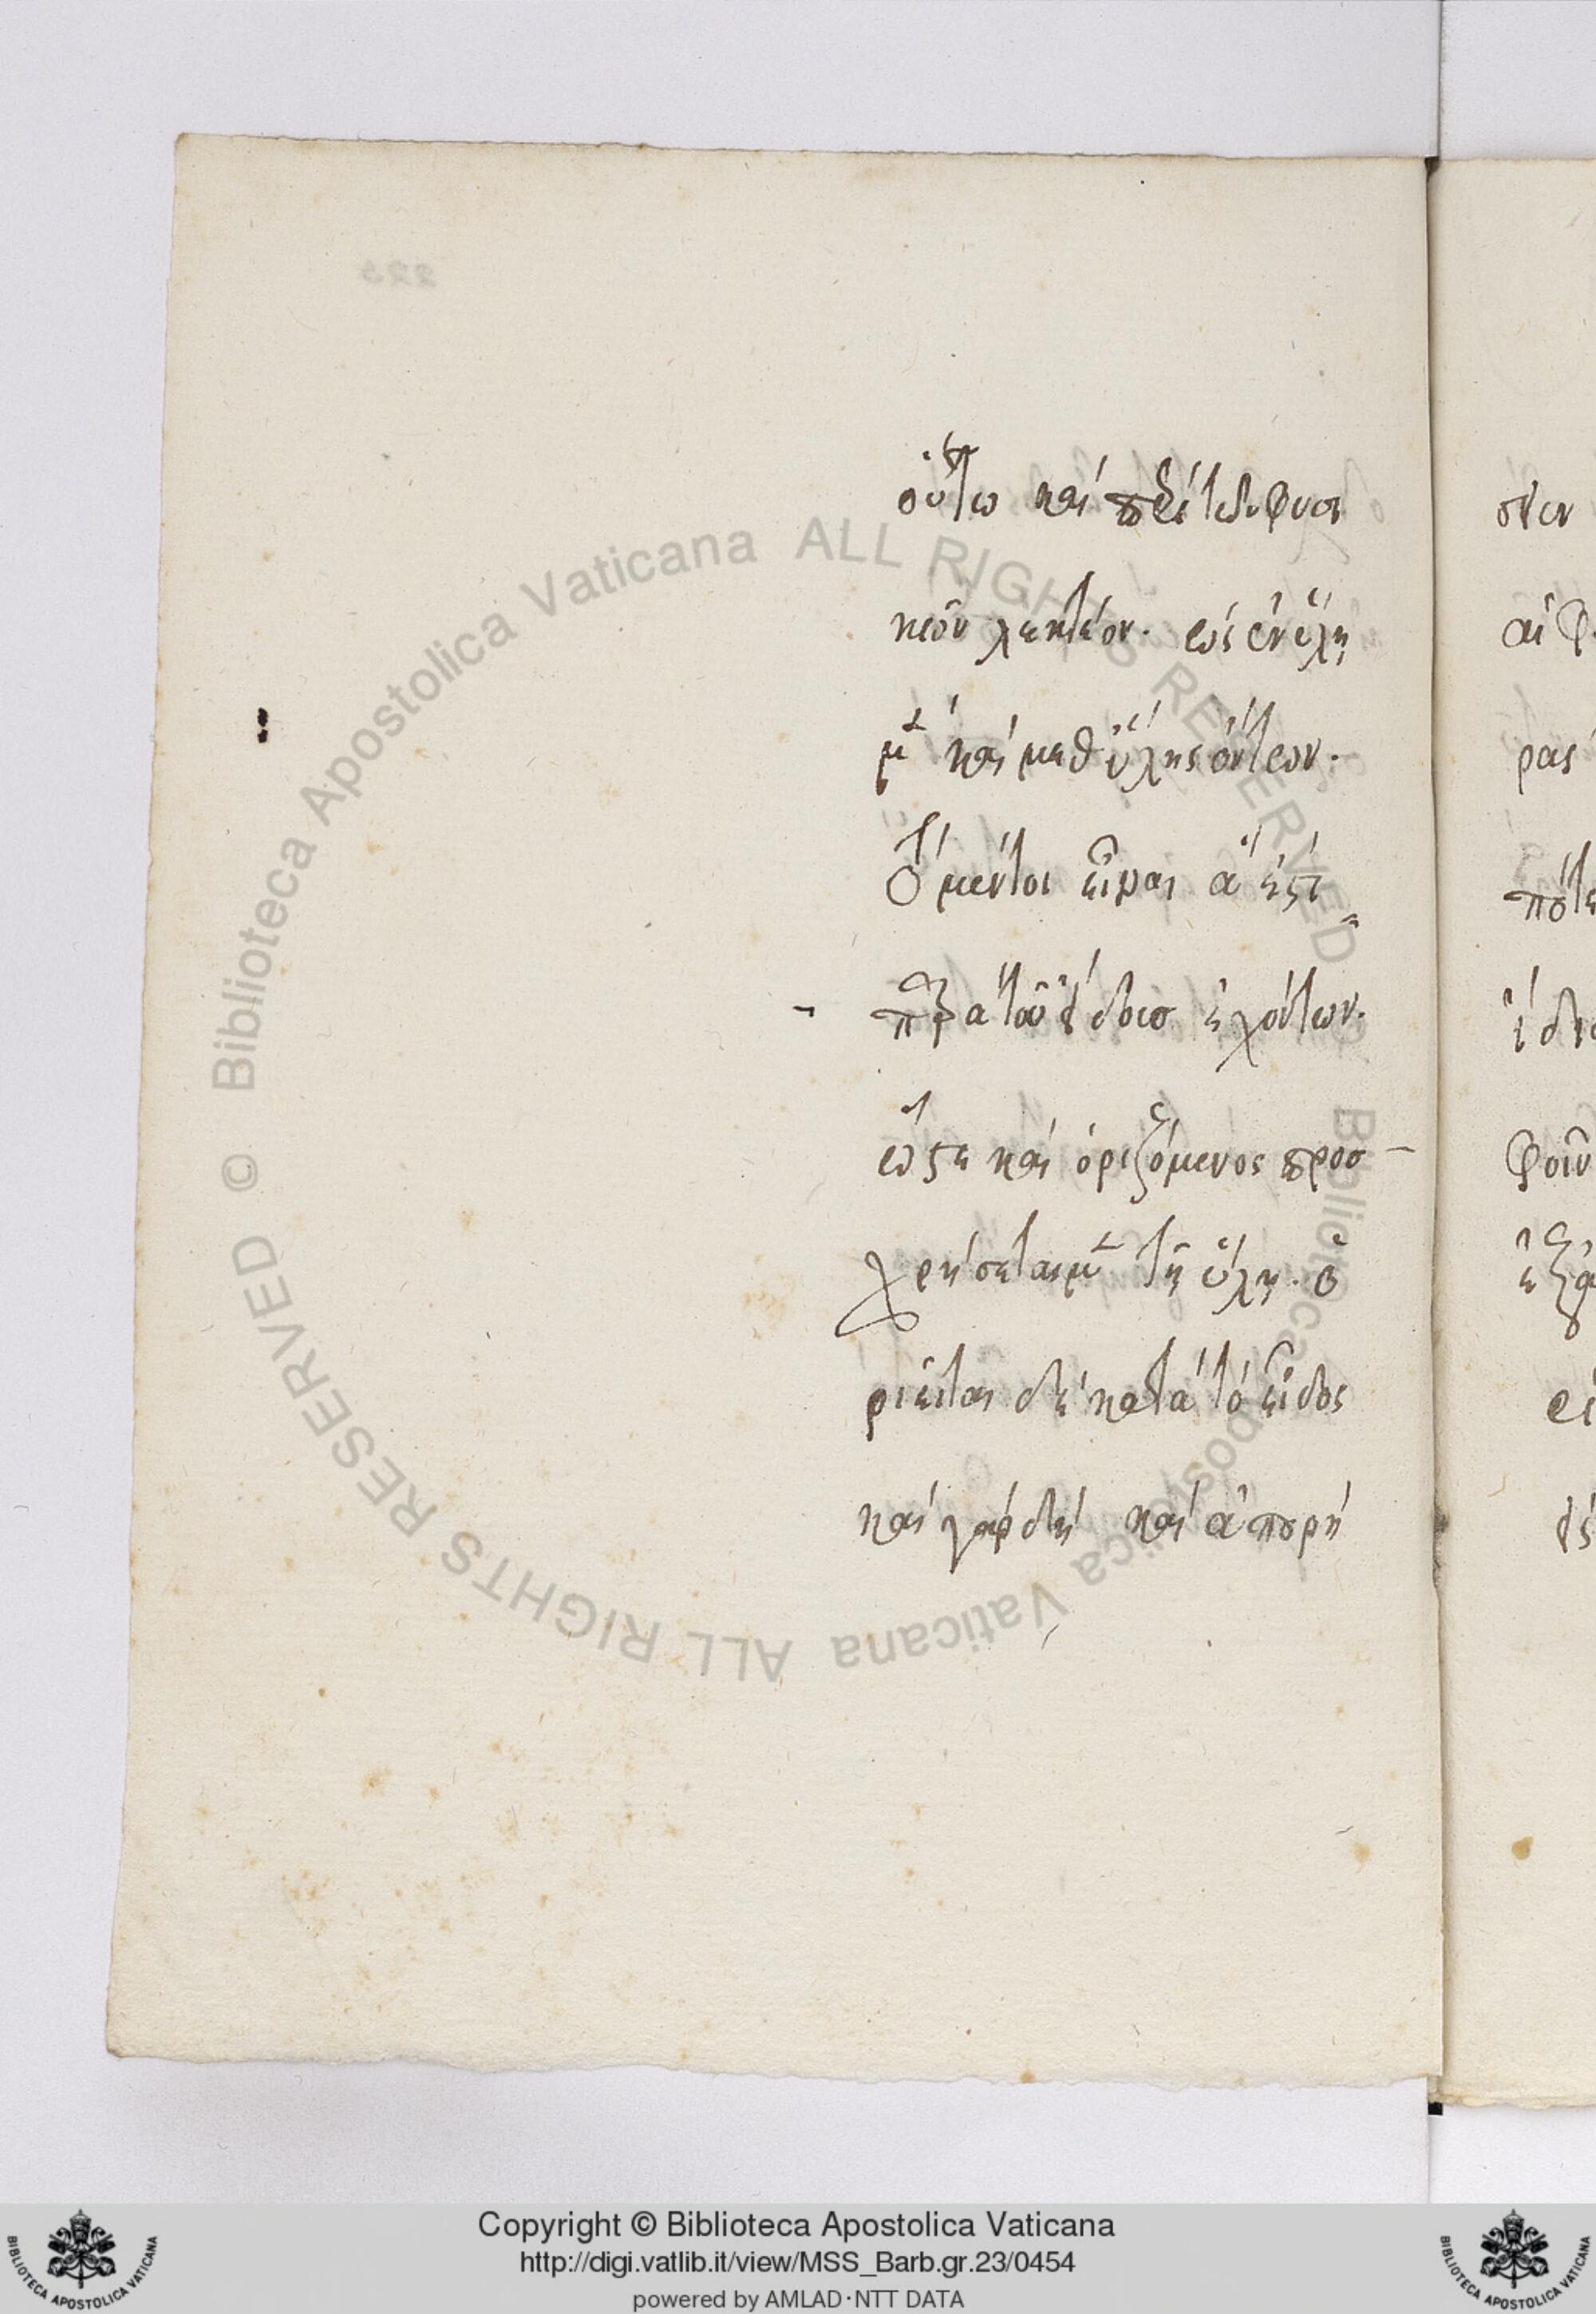 οὕτω καὶ περὶ τῶν φυσι
κῶν λεκτέον. ὡς ἐν ὕλῃ
μὲν καὶ μεθ ὕλης ὄντων.
τὸ μέντοι εἶναι ἅ ἐστι
παρα τοῦ εἴδους ἐχόντων.
ὥστε καὶ ὁριζόμενος προσ
χρήσεται μὲν τῇ ὕλῃ. ὁ
ριεῖται δὲ κατὰ τὸ εἶδος
καὶ γὰρ δὴ καὶ ἀπορή
© Biblioteca Apostolica Vaticana ALL RIGHTS RESERVED
Biblioteca Apostolica Vaticana ALL RIGHTS RESERVED
Copyright © Biblioteca Apostolica Vaticana
http://digi.vatlib.it/view/MSS_Barb.gr.23/0454
powered by AMLAD·NTT DATA
BIBLIOTECA APOSTOLICA VATICANA
BIBLIOTECA APOSTOLICA VATICANA